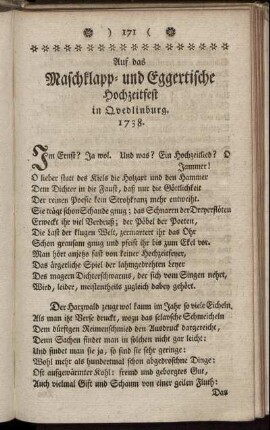 ) 171 (
Auf das
Maschklapp- und Eggertische
Hochzeitfest
in Qvedlinburg.
1738.
Im Ernst? Ja wol. Und was? Ein Hochzeitlied? O
Jammer!
O lieber statt des Kiels die Holzart und den Hammer
Dem Dichter in die Faust, daß nur die Göttlichkeit
Der reinen Poesie kein Strohkranz mehr entweiht.
Sie trägt schon Schande gnug; das Schnarren der Dreyerflöten
Erweckt ihr viel Verdruß; der Pöbel der Poeten,
Die fast der klugen Welt, germartert ihr das Ohr
Schon grausam gnug und pfeift ihr bis zum Ekel vor.
Man hört anjetzo fast von keiner Hochzeitfeyer,
Das ärgerliche Spiel der lahmgedrehten Leyer
Des magern Dichterschwarms, der sich vom Singen nehrt,
Wird, leider, meistentheils zugleich dabey gehört.
Der Harzwald zeuget wol kaum im Jahr so viele Eicheln,
Als man itzt Verse druckt, wozu das sclavsche Schmeicheln
Dem dürftgen Reimenschmied den Ausdruck dargereicht,
Denn Sachen findet man in solchen nicht gar leicht:
Und findet man sie ja, so sind sie sehr geringe:
Wohl mehr als hundertmal schon abgedroschne Dinge:
Oft aufgewärmter Kohl: fremd und geborgtes Gut,
Auch vielmal Gift und Schaum von einer geilen Fluth:
Das